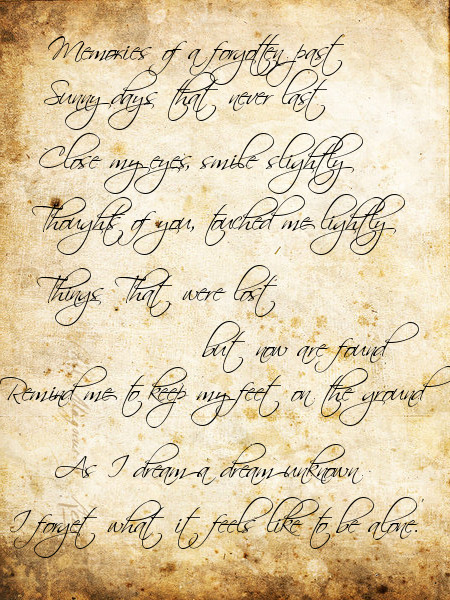 Memories of a forgotten past
Sunny days that never last
Close my eyes, smile slightly
Thoughts of you, touched me lightly
Things That were lost
but now are found
Remind me to keep my feet on the ground
As I dream a dream unknown
I forget what it feels like to be alone.